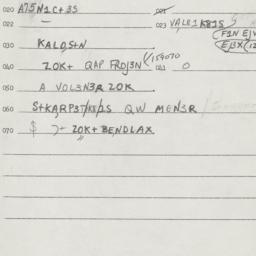 020 A75N1C+3S 021
022 — 023 VALE1KB1S
(F1N EJV
EJ3X (12
030 KALOS+N
040 ZOK+ QAP FRDJ3N (159070 041 O
050 A VOL3N3R ZOK
060 S+KARP3T/K3/1S QW MEN3R
070 $ 7+ ZOK+ BENDLAX